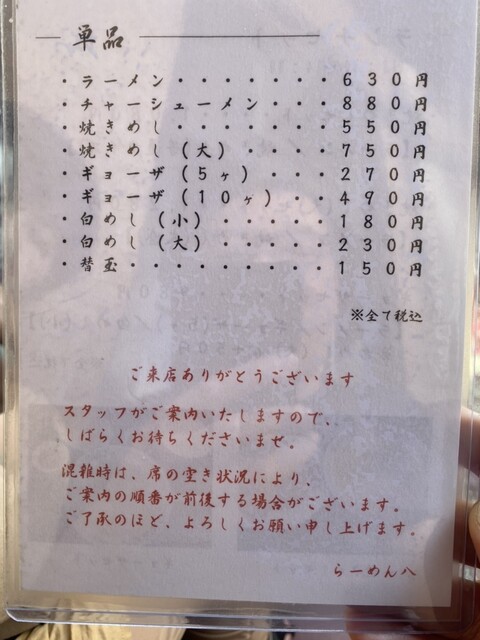 単品
・ラーメン・・・・・・・630円
・チャーシューメン・・・880円
・焼きめし・・・・・・・550円
・焼きめし(大)・・・・750円
・ギョーザ(5ヶ)・・・270円
・ギョーザ(10ヶ)・・490円
・白めし(小)・・・・・180円
・白めし(大)・・・・・230円
・替玉・・・・・・・・・150円
※全て税込
ご来店ありがとうございます
スタッフがご案内いたしますので、
しばらくお待ちくださいませ。
混雑時は、席の空き状況により、
ご案内の順番が前後する場合がございます。
ご了承のほど、よろしくお願い申し上げます。
らーめん八